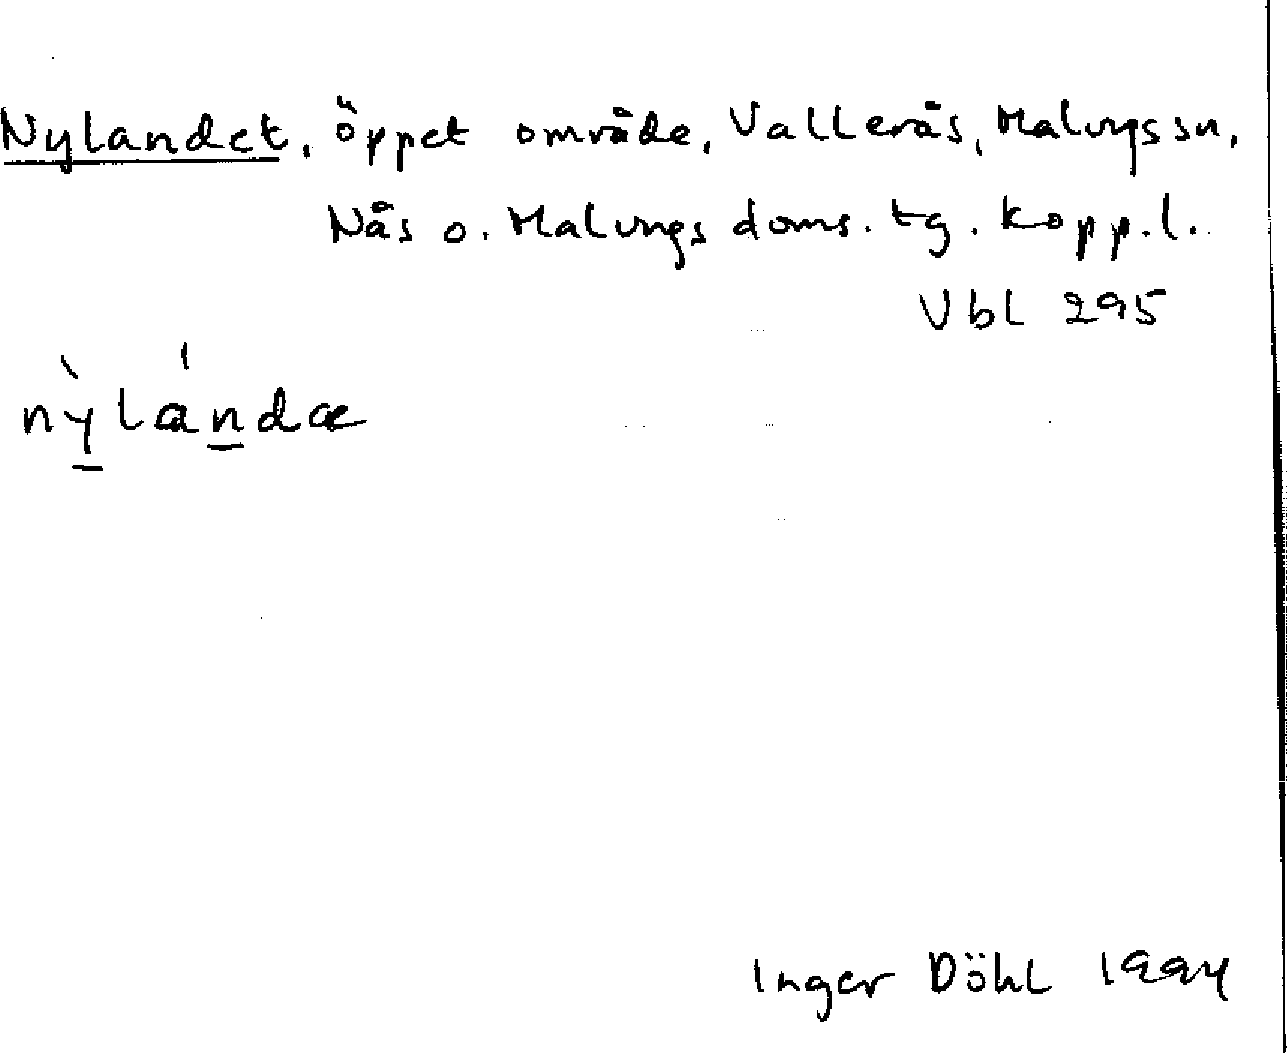 Nylandet, öppet område, Vallerås, Malungs sn,
Nås o. Malungs doms. tg. Kopp. l.
Vbl 295
nỳlándæ
Inger Döhl 1994